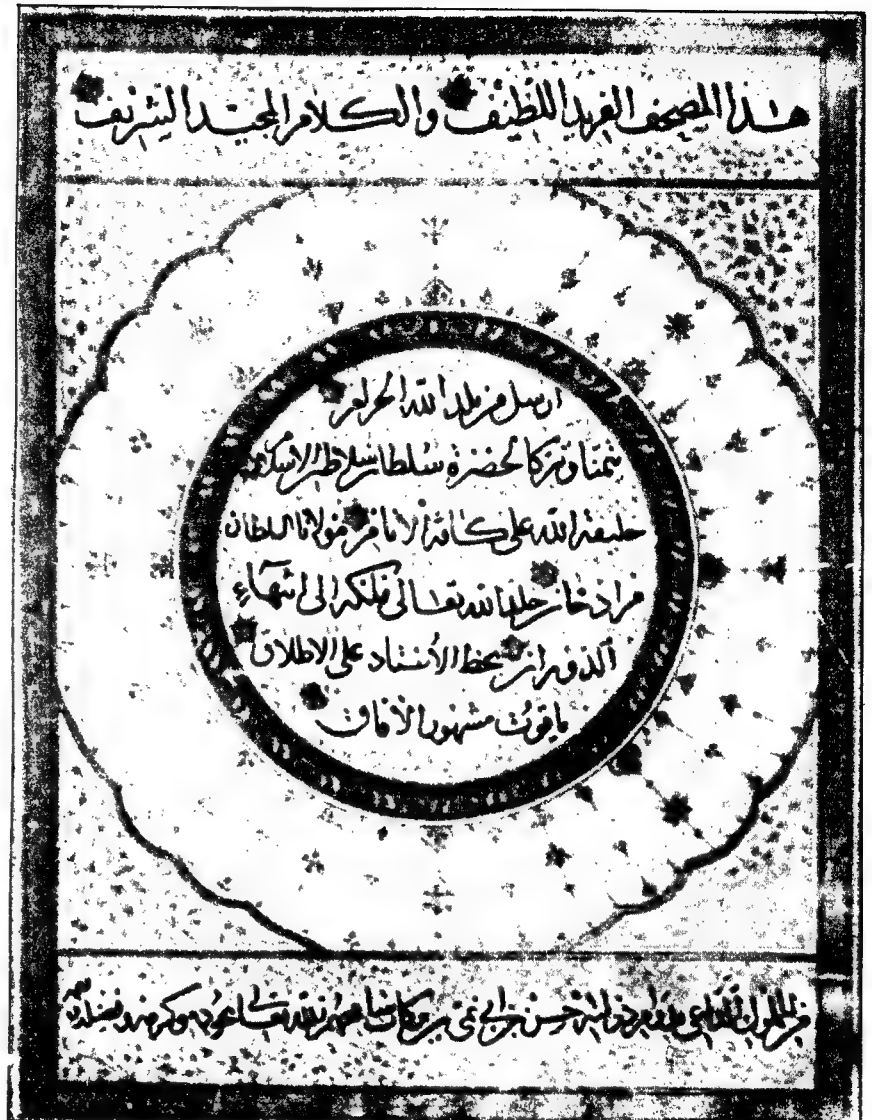 هذا المصحف الفريد اللطيف والكلام المجيد الشريف
ارسل من بلد الله الحرام
تيمنا وتبركا لحضرة سلطان سلاطين الاسلام
خليفة الله على كافة الانام مولانا السلطان
مراد خان خلد الله تعالى ملكه الى انتهاء
الدوران بخط الأستاد على الاطلاق
ياقوت مشهور الآفاق
حسن بن ابي نمي بن بركات الله تعالى